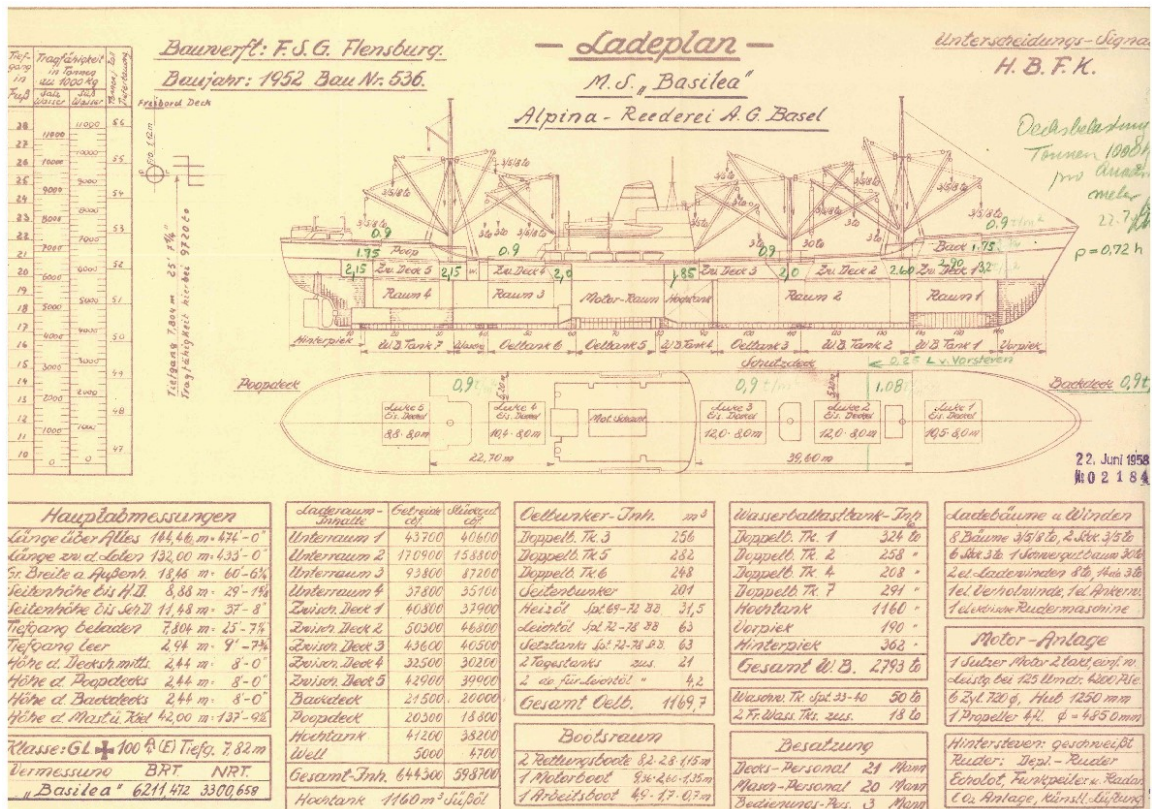 Bauwerft: F.S.G. Flensburg.
Baujahr: 1952 Bau Nr. 536.
— Ladeplan —
M.S. „Basilea"
Alpina - Reederei A.G. Basel
Unterscheidungs-Signa
H.B.F.K.
Tief-gang in Fuß
Tragfähigkeit in Tonnen zu 1000 kg
Salz Wasser
Süß Wasser
Freibord Deck
28
27
26
25
24
23
22
21
20
19
18
17
16
15
14
13
12
11
10
11000
10000
9000
8000
7000
6000
5000
4000
3000
2000
1000
0
56
55
54
53
52
51
50
49
48
47
Tiefgang 7,804 m 25' 7¼"
Tragfähigkeit hierbei 9720 to
Decksbelastung
Tonnen
pro
meter
ρ=0,72 h
0.9
0.9
0.9
0.9
1.75
Poop
Back
1.75
2,15
Zw. Deck 5
2,15
Zw. Deck 4
2,0
1,85
Zw. Deck 3
2,0
Zw. Deck 2
2.60
Zw. Deck 1
2.90
Raum 4
Raum 3
Motor-Raum
Hochtank
Raum 2
Raum 1
Hinterpiek
W.B. Tank 7
Oeltank 6
Oeltank 5
W.B. Tank 4
Oeltank 3
W.B. Tank 2
W.B. Tank 1
Vorpiek
Schutzdeck
← 0,25 L v. Vorsteven
Poopdeck
0,9 t
0,9 t/m
1.08
Backdeck 0,9 t
Luke 5
Eis. Deckel
8,8 · 8,0 m
Luke 4
Eis. Deckel
10,4 · 8,0 m
Mot. Schacht
Luke 3
Eis. Deckel
12,0 · 8,0 m
Luke 2
Eis. Deckel
12,0 · 8,0 m
Luke 1
Eis. Deckel
10,5 · 8,0 m
22,70 m
39,60 m
22. Juni 1958
02184
Hauptabmessungen
Länge über Alles 144,46 m = 474' - 0"
Länge zw. d. Loten 132,00 m = 433' - 0"
Gr. Breite a. Außenh. 18,46 m = 60' - 6¾"
Seitenhöhe bis H.D. 8,88 m = 29' - 1⅝"
Seitenhöhe bis Sch.D. 11,48 m = 37' - 8"
Tiefgang beladen 7,804 m = 25' - 7¼"
Tiefgang leer 2,94 m = 9' - 7¾"
Höhe d. Decks mitts. 2,44 m = 8' - 0"
Höhe d. Poopdecks 2,44 m = 8' - 0"
Höhe d. Backdecks 2,44 m = 8' - 0"
Höhe d. Mast ü. Kiel 42,00 m = 137' - 9½"
Klasse: GL ✠ 100 A (E) Tiefg. 7,82 m
Vermessung BRT. NRT.
„Basilea" 6211,472 3300,658
Laderaum-Inhalte Getreide cbf. Stückgut cbf.
Unterraum 1 43700 40600
Unterraum 2 170900 158800
Unterraum 3 93800 87200
Unterraum 4 37800 35100
Zwisch. Deck 1 40800 37900
Zwisch. Deck 2 50300 46800
Zwisch. Deck 3 43600 40500
Zwisch. Deck 4 32500 30200
Zwisch. Deck 5 42900 39900
Backdeck 21500 20000
Poopdeck 20300 18800
Hochtank 41200 38200
Well 5000 4700
Gesamt-Inh. 644300 598700
Hochtank 1160 m³ Süßöl
Oelbunker-Inh. m³
Doppelb. Tk. 3 256
Doppelb. Tk. 5 282
Doppelb. Tk. 6 248
Seitenbunker 201
Heizöl Spt. 69-72 BB 31,5
Leichtöl Spt. 72-78 BB 63
Setztanks Spt. 72-78 St.B. 63
2 Tagestanks zus. 21
2 do. für Leichtöl " 4,2
Gesamt Oelb. 1169,7
Bootsraum
2 Rettungsboote 8,2 · 2,8 · 1,15 m
1 Motorboot
1 Arbeitsboot 4,9 · 1,7 · 0,7 m
Wasserballasttank-Inh. to
Doppelb. Tk. 1 324 to
Doppelb. Tk. 2 258 "
Doppelb. Tk. 4 208 "
Doppelb. Tk. 7 291 "
Hochtank 1160 "
Vorpiek 190 "
Hinterpiek 362 "
Gesamt W.B. 2793 to
Waschw. Tk. Spt. 33-40 50 to
2 Fr. Wass. Tks. zus. 18 to
Besatzung
Decks-Personal 21 Mann
Masch-Personal 20 Mann
Bedienungs-Pers. 3 Mann
Ladebäume u. Winden
8 Bäume 3/5/8 to, 2 Stck 3/5 to
6 Stck 3 to 1 Schwergutbaum 30 to
2 el. Ladewinden 8 to, 14 do 3 to
1 el. Verholwinde, 1 el. Ankerw.
Rudermaschine
Motor-Anlage
1 Sulzer Motor 2 takt, einf. w.
Leistg. bei 125 Umdr. 4200 PSe
6 Zyl. 720 ø, Hub 1250 mm
1 Propeller 4 fl. ø = 4850 mm
Hintersteven: geschweißt
Ruder: Depl. - Ruder
Echolot, Funkpeiler u. Radar
CO₂ Anlage, künstl. Lüftung